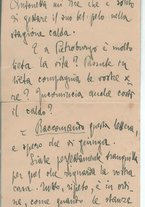 Antonietta mi dice che è
gettare il suo bel pelo nella
stagione calda.
E a Pietroburgo è molto
lieta la vita? Passate in
lieta compagnia le vostre
Incomincia anche costì
il caldo?
Raccomando questa lettera,
e spero che vi giunga.
Siate perfettamente tranquilla
per quel che riguarda la vostra
casa. Tutto, ripeto, è in ordi-
ne, come quando le stanze